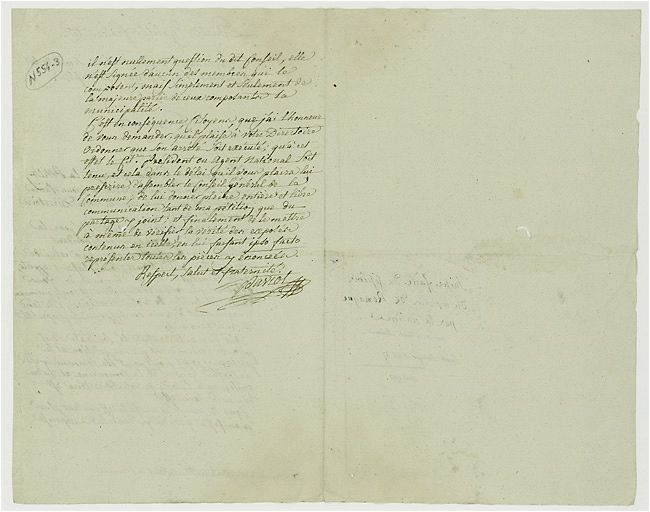 N 554-3
il n'est nullement question du dit Conseil, elle
n'est signée d'aucun des membres qui le
composent, mais simplement et seulement de
la majeure partie de ceux composants la
municipalité.
C'est en conséquence, Citoyens, que j'ai l'honneur
de vous demander, qu'il plaise à votre Directoire
Ordonner que son arrêté soit exécuté; qu'à cet
effet le Président ou Agent National soit
tenu, et cela dans le délai qu'il vous plaira lui
prescrire, d'assembler le Conseil général de la
commune, de lui donner pleine entière et libre
communication tant de ma pétition que du
partage y joint; et finalement de le mettre
à même de vérifier la vérité des exposés
contenus en icelle, en lui faisant ipso facto
représenter toutes les pièces y énoncées.
Respect, Salut et fraternité.